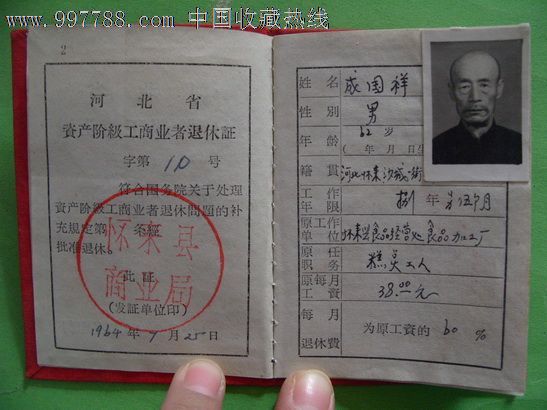 www.997788.com 中国收藏热线
2
河北省
資产阶級工商业者退休証
字第 10 号
符合国务院关于处理
資产阶級工商业者退休問題的补
充規定第 条經
批准退休。
此証
怀来县
商业局
(发証单位印)
1964 年 9 月 25 日
姓名 成国祥
性別 男
年龄 62 岁
( 年 月 日生
籍貫 河北怀来沙城
工作年限 捌 年 月
原工作单位 怀来县食品经营处食品加工厂
原任职务 糕点工人
原每月工資 38.00元
每月退休費 为原工資的 60 %